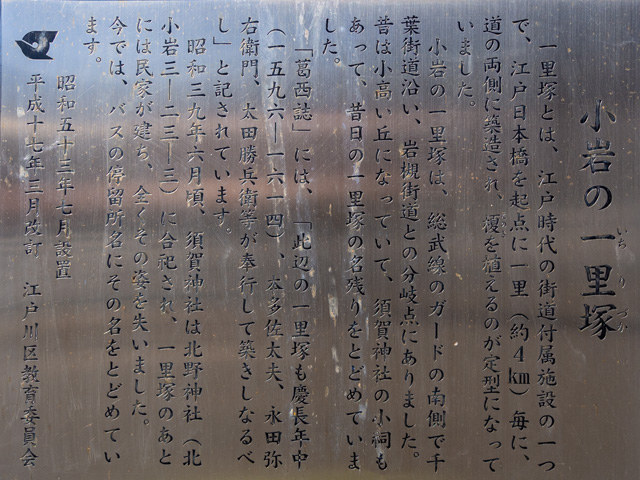 小岩の一里塚
いちりづか
一里塚とは、江戸時代の街道付属施設の一つ
で、江戸日本橋を起点に一里(約4km)毎に、
道の両側に築造され、榎を植えるのが定型になって
いました。
小岩の一里塚は、総武線のガードの南側で千
葉街道沿い、岩槻街道との分岐点にありました。
昔は小高い丘になっていて、須賀神社の小祠も
あって、昔日の一里塚の名残りをとどめていま
した。
「葛西誌」には、「此辺の一里塚も慶長年中
(一五九六―一六一四)、本多佐太夫、永田弥
右衛門、太田勝兵衛等が奉行して築きしなるべ
し」と記されています。
昭和三九年六月頃、須賀神社は北野神社(北
小岩三―二三―三)に合祀され、一里塚のあと
には民家が建ち、全くその姿を失いました。
今では、バスの停留所名にその名をとどめてい
ます。
昭和五十三年七月設置
平成十七年三月改訂 江戸川区教育委員会